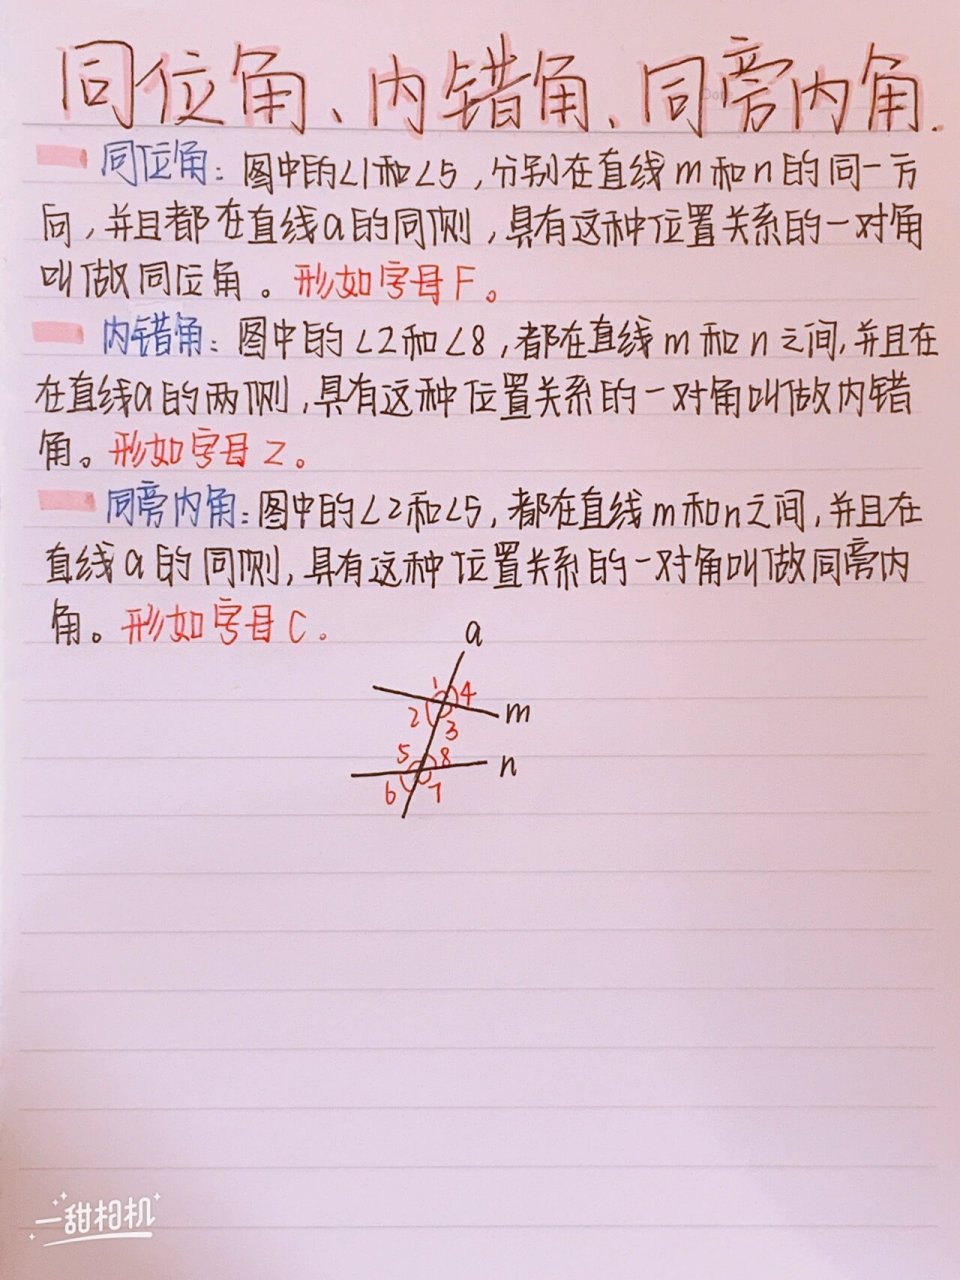 同位角、内错角、同旁内角.
同位角：图中的∠1和∠5，分别在直线m和n的同一方
向，并且都在直线a的同侧，具有这种位置关系的一对角
叫做同位角。形如字母F。
内错角：图中的∠2和∠8，都在直线m和n之间，并且在
在直线a的两侧，具有这种位置关系的一对角叫做内错
角。形如字母Z。
同旁内角：图中的∠2和∠5，都在直线m和n之间，并且在
直线a的同侧，具有这种位置关系的一对角叫做同旁内
角。形如字母C。
a
1 4
2 3 m
5 8 n
6 7
一甜相机